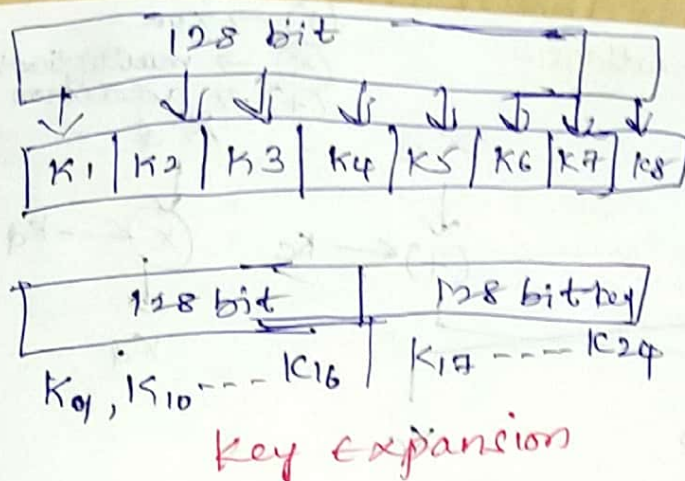 128 bit
K1 K2 K3 K4 K5 K6 K7 K8
128 bit 128 bit key
K9, K10 ---- K16 K17 ---- K24
Key Expansion